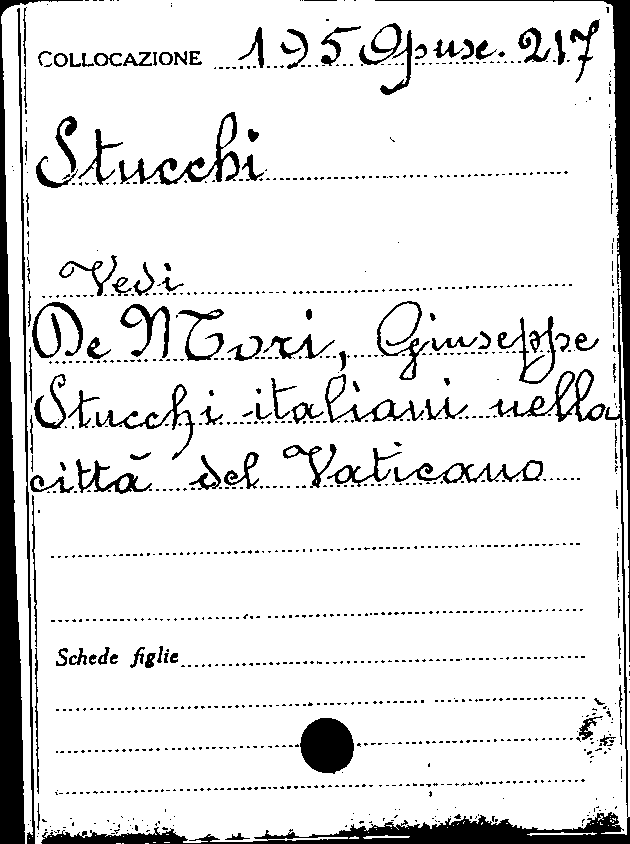 COLLOCAZIONE 195 Opusc. 217
Stucchi
Vedi
De Mori, Giuseppe
Stucchi italiani nella
città del Vaticano
Schede figlie